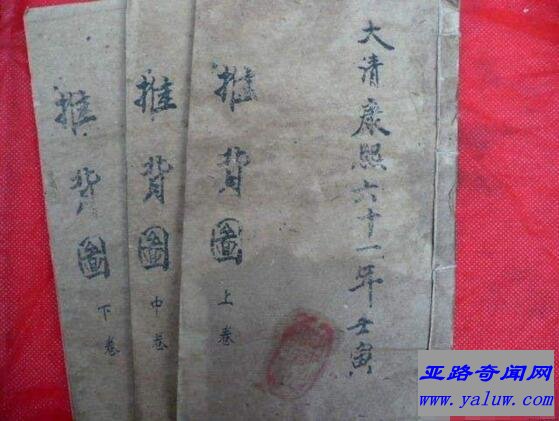 大清康熙六十一年壬寅
推背圖
上卷
推背圖
中卷
推背圖
下卷
亚路奇闻网
www.yaluw.com